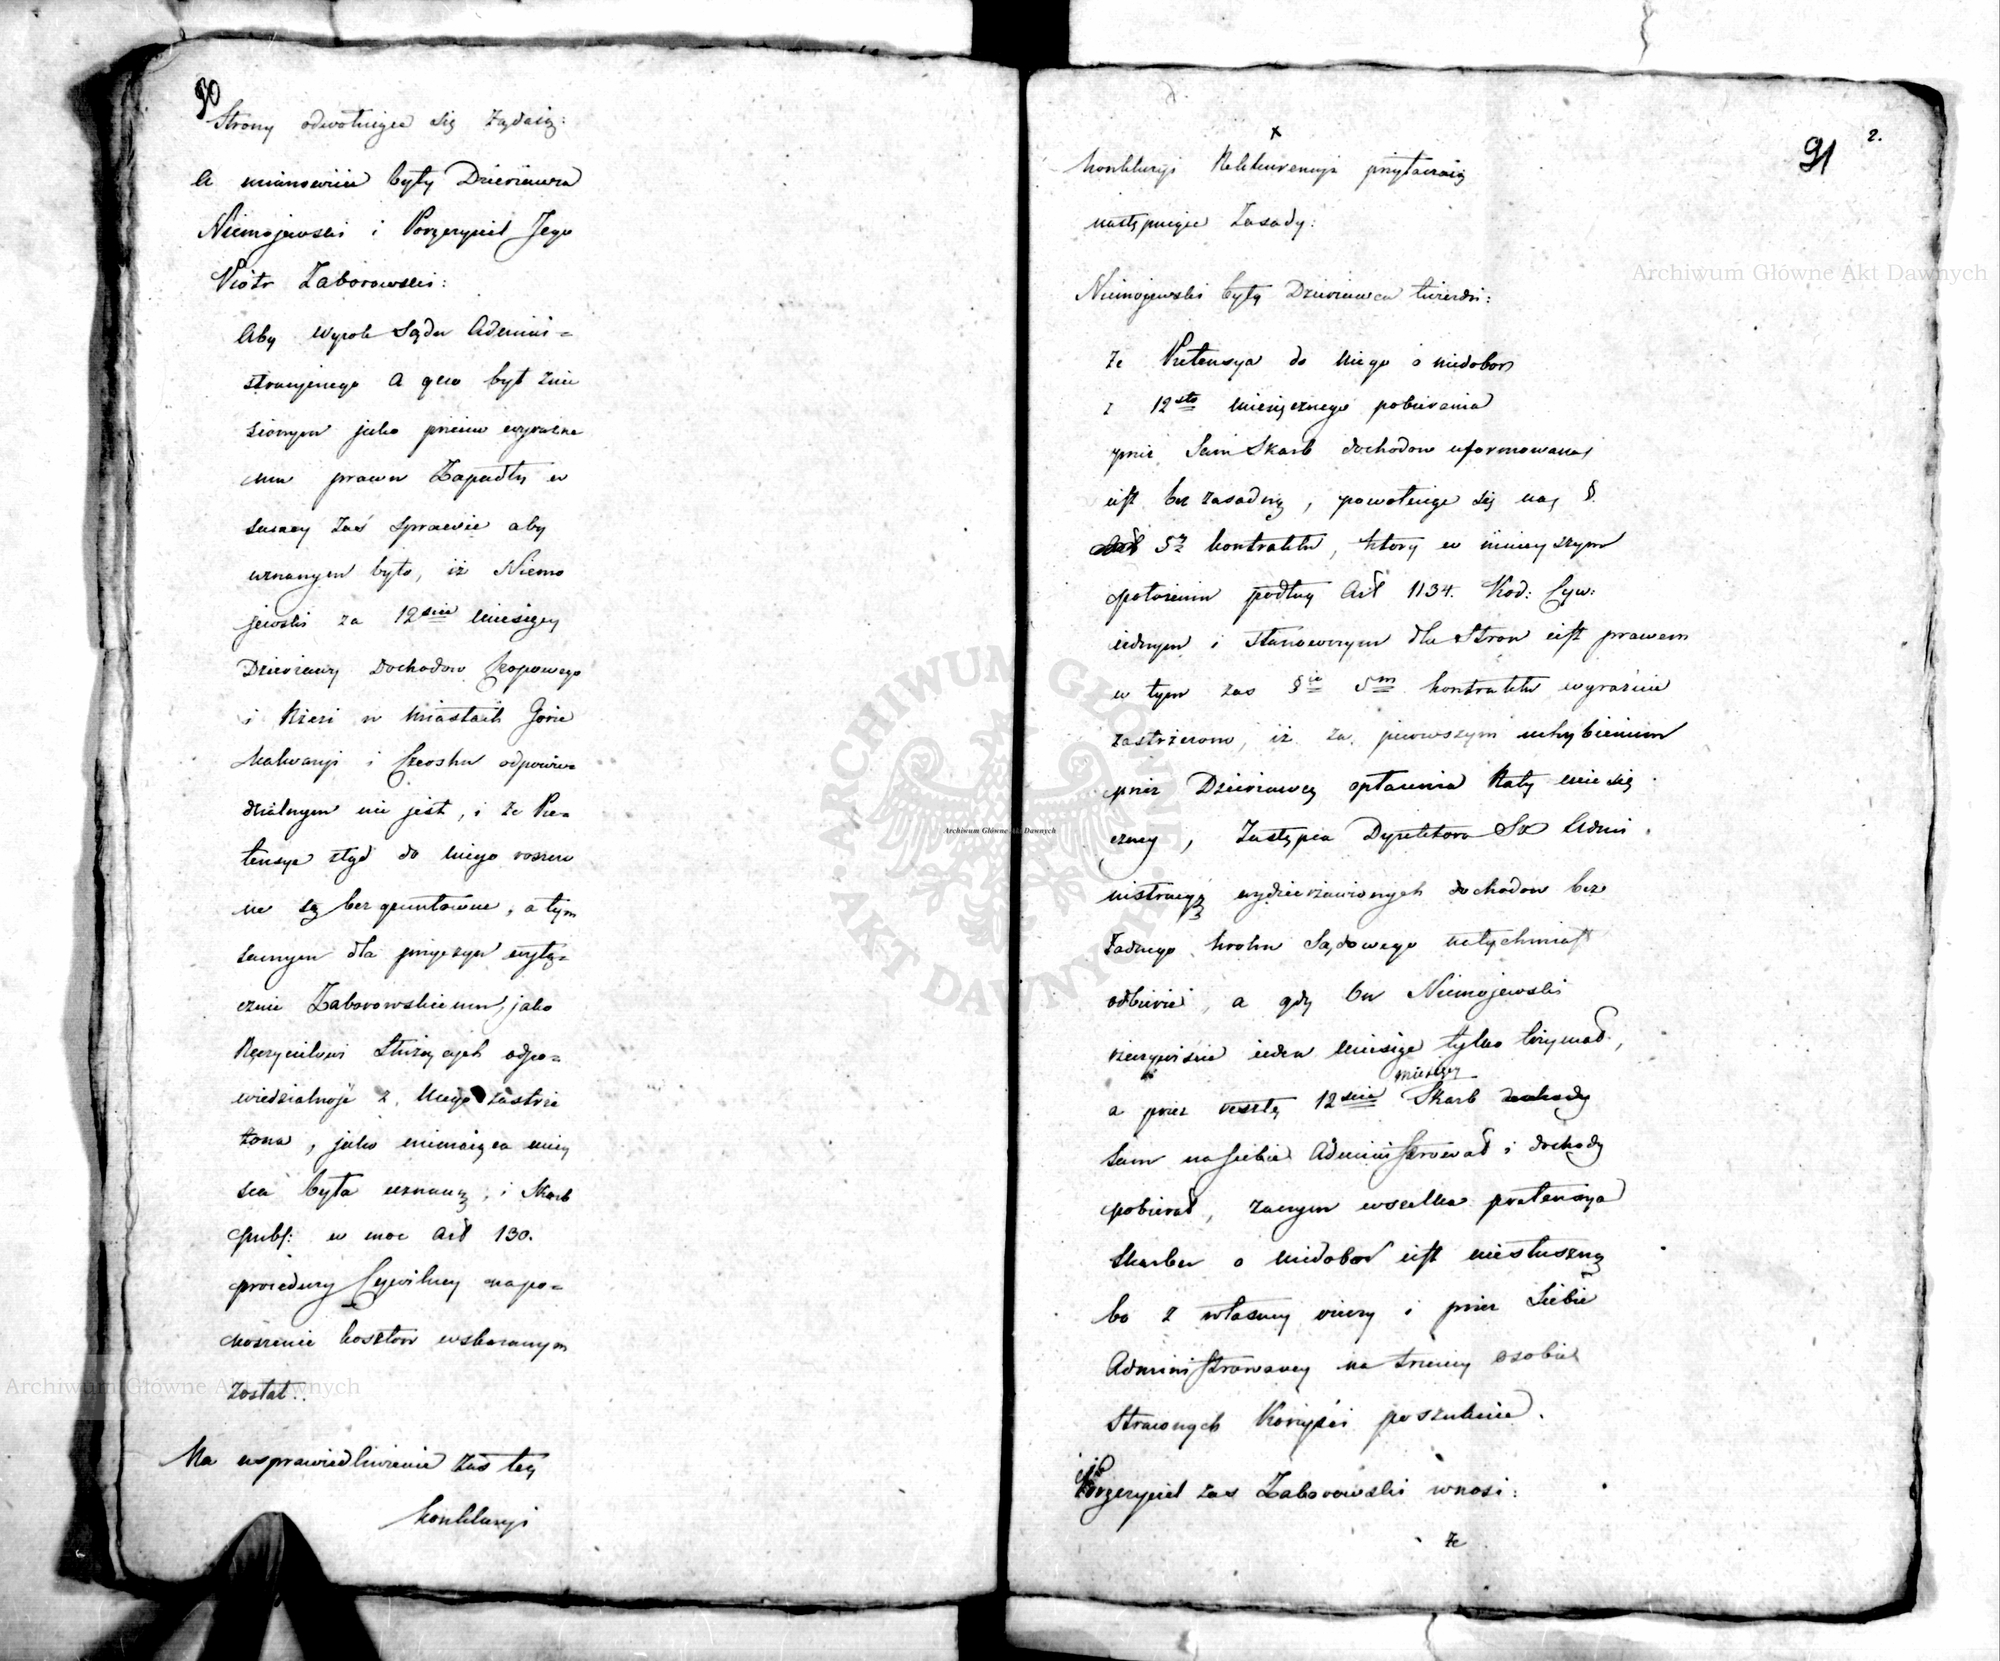 90
Strony odwołuiące się żądaią:
A mianowicie były Dzierżawca
Niemojewski i Poręczyciel Jego
Piotr Zaborowski:
Aby wyrok Sądu Admini=
stracyjnego A quo był znie
sionym jako przeciw wyraźne
mu prawu Zapadły w
samey zaś sprawie aby
uznanym było, iż Niemo
jewski za 12ście miesięcy
Dzierżawy Dochodów Kopowego
i Rzezi w Miastach Górze
Kalwaryi i Czersku odpowie=
dzialnym nie jest, i że Pre=
tensye ztąd do niego roszczo
ne są bezgruntowne, a tym
samym dla przyczyn wyłą=
cznie Zaborowskiemu, jako
Ręczycielowi służących odpo=
wiedzialność z niego zastrze
żona, jako niemaiąca miey
sca była uznaną, i Skarb
Publ: w moc Art 130.
procedury Cywilney na po=
noszenie kosztów wskazanym
został.
Na usprawiedliwienie zaś tey
konkluzyi
91
2.
konkluzyi Rekkurencyi przytaczaią
następuiące Zasady:
Niemojewski były Dzierżawca twierdzi:
że Pretensya do niego o niedobor
z 12sto miesięcznego pobierania
przez Sam Skarb dochodow uformowana
iest bezzasadną, powołuiąc się na §.
5ty kontraktu, który w ninieyszym
położeniu podług Art 1134. Kod: Cyw:
iednym i stanowczym dla Stron iest prawem
w tym zaś §ie 5m kontraktu wyraźnie
zastrzeżono, iż za pierwszym uchybieniem
przez Dzierżawcę opłacenia Raty miesię
czney, Zastępca Dyrektora Admi
nistracyą wydzierżawionych dochodow bez
żadnego kroku Sądowego natychmiast
odbierze, a gdy On Niemojewski
rzeczywiście ieden Miesiąc tylko trzymał,
miesięcy
a przez resztę 12ście Skarb
sam na siebie Administrował i dochody
pobierał, zaczym wszelka pretensya
Skarbu o niedobor iest niesłuszną
bo z własney winy i przez Siebie
Administrowaney na trzeciey osobie
straconych Korzyści poszukuie.
Poręczyciel zaś Zaborowski wnosi:
że
Archiwum Główne Akt Dawnych
Archiwum Główne Akt Dawnych
Archiwum Główne Akt Dawnych
ARCHIWUM GŁÓWNE AKT DAWNYCH